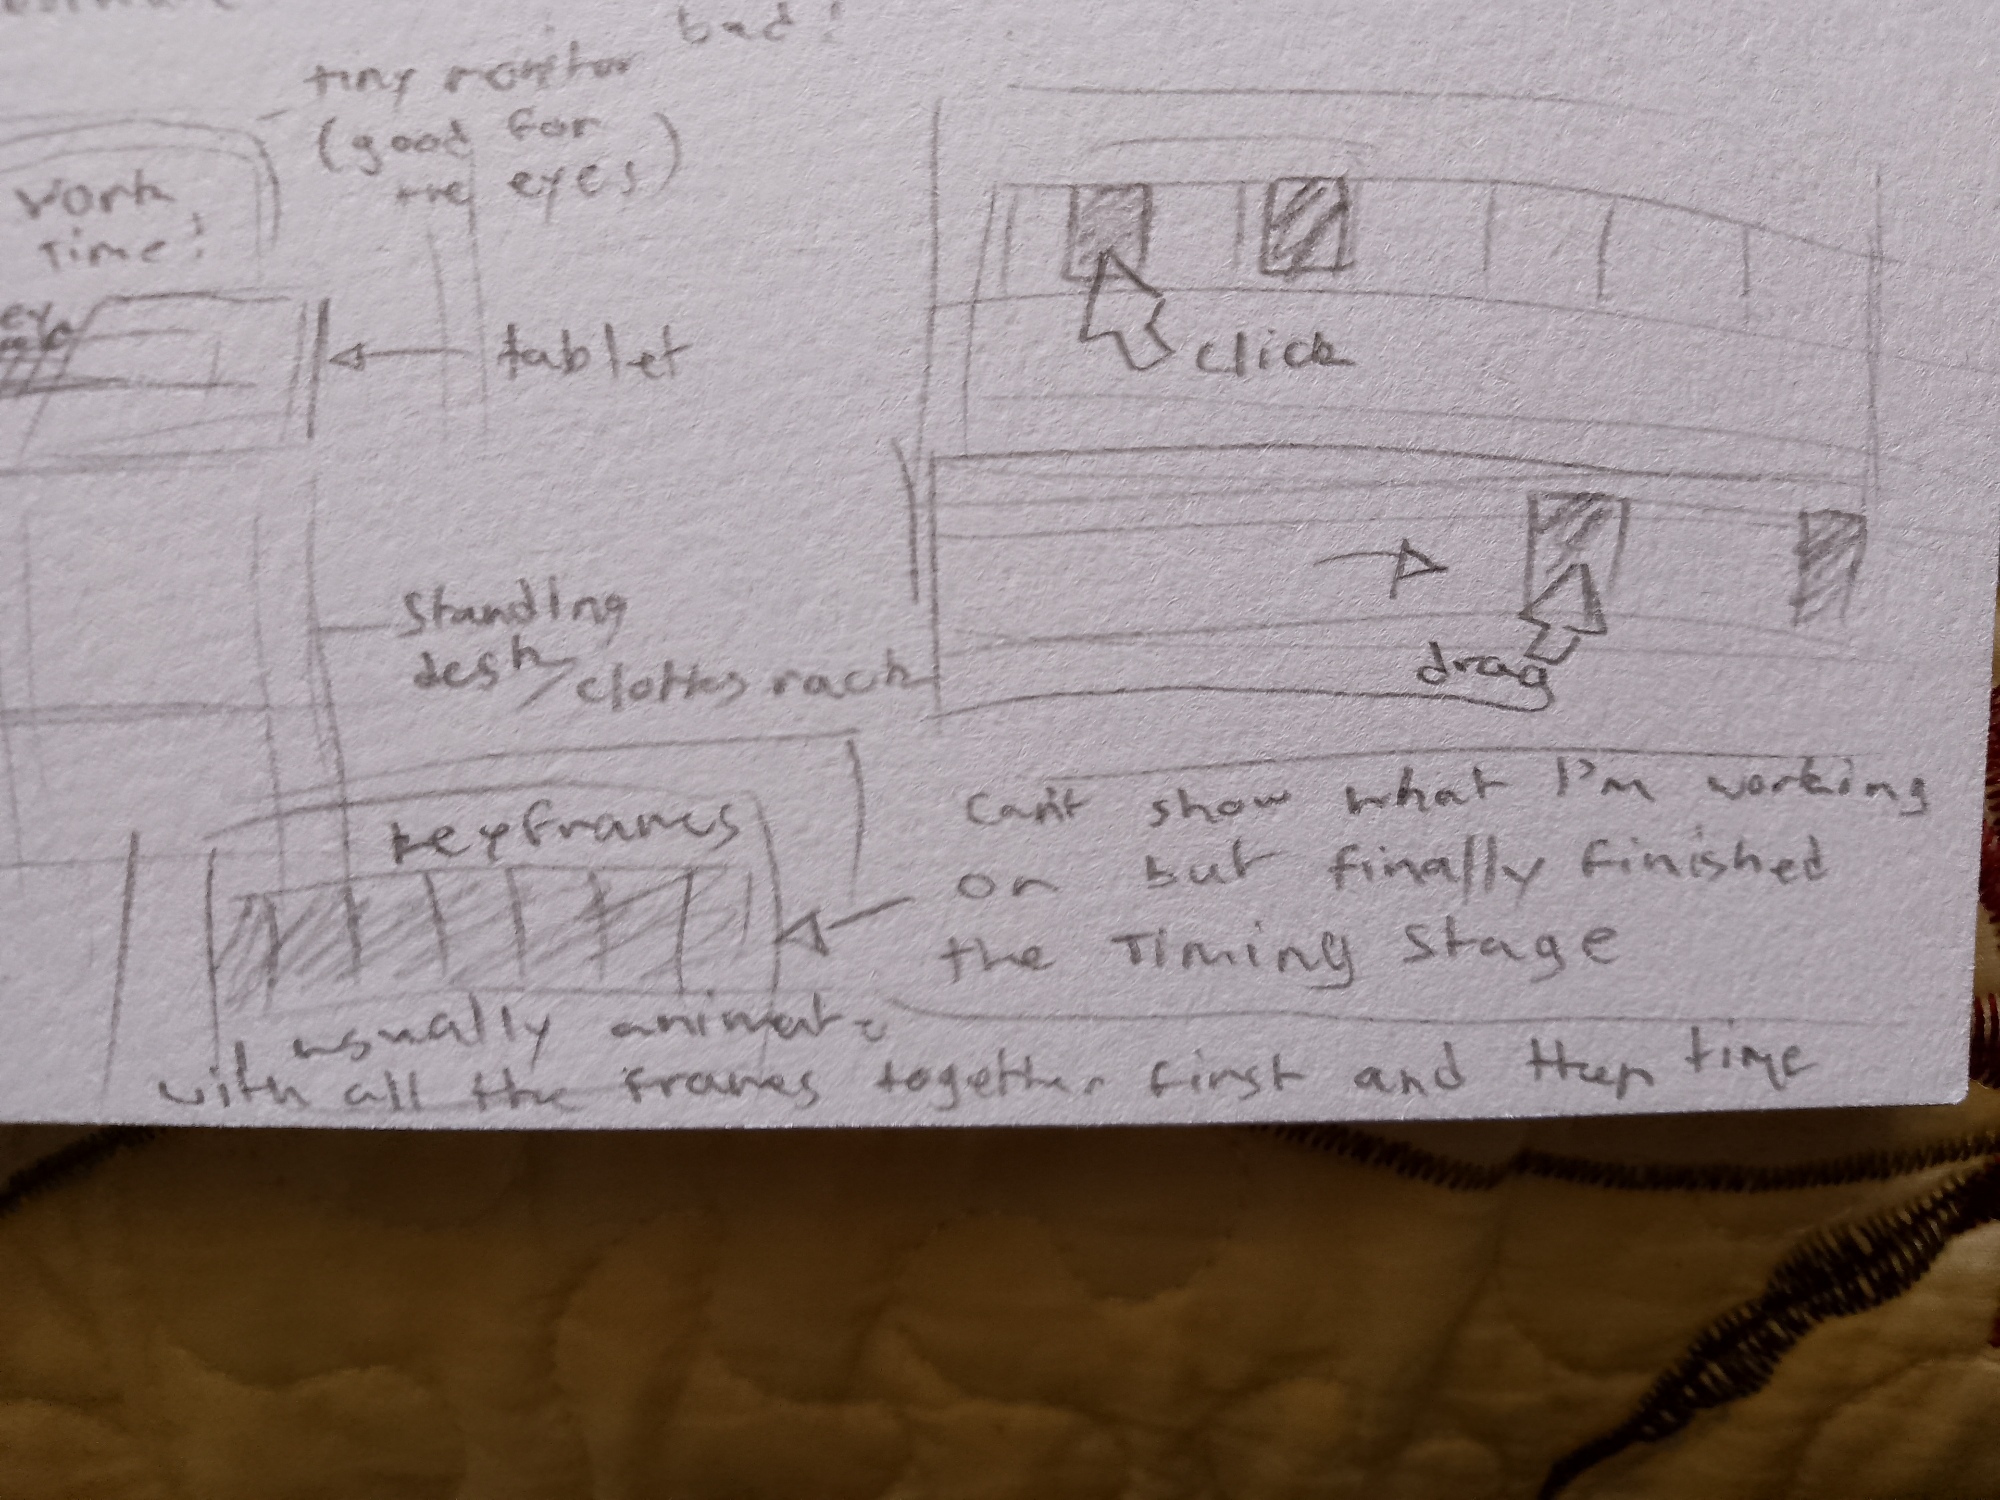 bad!
tiny monitor
(good for
the eyes)
work
time!
tablet
click
drag
Standing
desk/clothes rack
keyframes
Can't show what I'm working
on but finally finished
the Timing Stage
I usually animate
with all the frames together first and then time